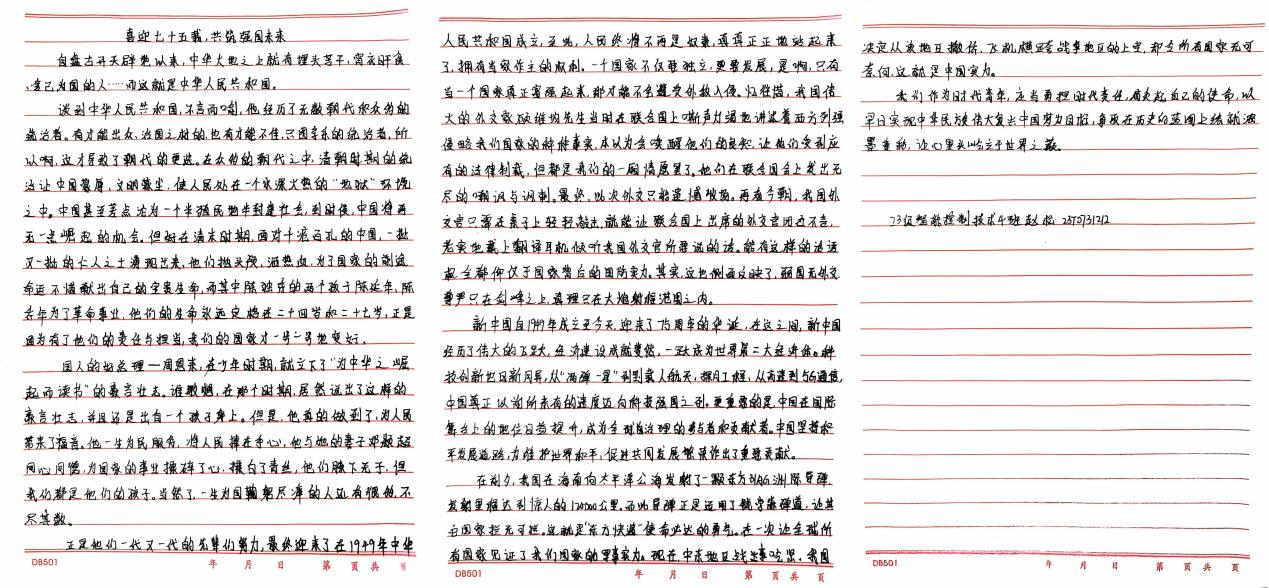 喜迎七十五载,共筑强国未来
自盘古开天辟地以来,中华大地之上就有埋头苦干,宵衣旰食
舍己为国的人……而这就是中华人民共和国。
谈到中华人民共和国,不言而喻,他经历了无数朝代和众多的
统治者。有才能出众,治国之时的,也有才能不佳,只图享乐的统治者,所
以啊,这才导致了朝代的更迭。在众多的朝代之中,清朝时期的统
治让中国蒙辱,文明蒙尘,使人民处在一个水深火热的“地狱”环境
之中。中国甚至差点沦为一个半殖民地半封建社会,到时候,中国将再
无一点崛起的机会。但好在清末时期,面对千疮百孔的中国,一批
又一批的仁人之士涌现出来,他们抛头颅,洒热血,为了国家的前途
命运不惜献出自己的宝贵生命,而其中陈独秀的两个孩子陈延年、陈
乔年为了革命事业,他们的生命永远定格在二十四岁和二十七岁,正是
因为有了他们的责任与担当,我们的国家才一步一步地变好。
国人的好总理—周恩来,在少年时期,就立下了“为中华之崛
起而读书”的豪言壮志。谁敢想,在那个时期,居然说出了这样的
豪言壮志,并且还是出自一个孩子身上。但是,他真的做到了,为人民
带来了福音。他一生为民服务,将人民捧在手心,他与她的妻子邓颖超
同心同德,为国家的事业操碎了心,操白了青丝,他们膝下无子,但
我们都是他们的孩子。当然了,一生为国鞠躬尽瘁的人还有很多,不
尽其数。
正是他们一代又一代的先辈们努力,最终迎来了在1949年中华
人民共和国成立,至此,人民终将不再是奴隶,真真正正地站起来
了,拥有当家作主的权利。一个国家不仅要独立,更要发展,是啊,只有
当一个国家真正富强起来,那才能不会遭受外敌入侵。忆往惜,我国伟
大的外交家顾维钧先生当时在联合国上嘶声力竭地讲述着西方列强
侵略我们国家的种种事实,本以为会唤醒他们的良知,让他们受到应
有的法律制裁,但都是我们的一厢情愿罢了。他们在联合国会上发出无
尽的嘲讽与讽刺。最终,此次外交只能遗憾收场。再看今朝,我国外
交官只需在桌子上轻轻敲击,就能让联合国上出席的外交官闭口不言,
老实地戴上翻译耳机倾听我国外交官所要说的话。能有这样的话语
权全都仰仗于国家背后的国防实力。其实,这也侧面反映了,弱国无外交
尊严只在剑峰之上,真理只在大炮射程范围之内。
新中国自1949年成立至今天,迎来了75周年的华诞,在这之间,新中国
经历了伟大的飞跃,经济建设成就斐然,一跃成为世界第二大经济体。科
技创新也日新月异,从“两弹一星”到到载人航天,探月工程,从高速到5G通信,
中国真正以前所未有的速度迈向科技强国之列。更重要的是,中国在国际
舞台上的地位日益提升,成为全球治理的参与者和贡献者。中国坚持和
平发展道路,为维护世界和平,促进共同发展繁荣作出了重要贡献。
在前夕,我国在海南向太平洋公海发射了一颗东为31AG洲际导弹
发射里程达到惊人的12000公里。而此导弹正是运用了钱学森弹道,让其
它国家拦无可拦。这就是“东方快递”使命必达的勇气。在一次让全球所
有国家见证了我们国家的军事实力。现在中东地区战事吃紧,我国
决定从该地区撤侨,飞机横穿战争地区的上空,那今所有国家无可
奈何,这就是中国实力。
我们作为时代青年,应当勇担时代责任,肩负起自己的使命,以
早日实现中华民族伟大复兴中国梦为目标,争取在历史的蓝图上绘就浓
墨重彩,让心里头屹立于世界之巅。
23级智能控制技术4班
DB501
年 月 日 第 页共 页
DB501
年 月 日 第 页共 页
DB501
年 月 日 第 页共 页